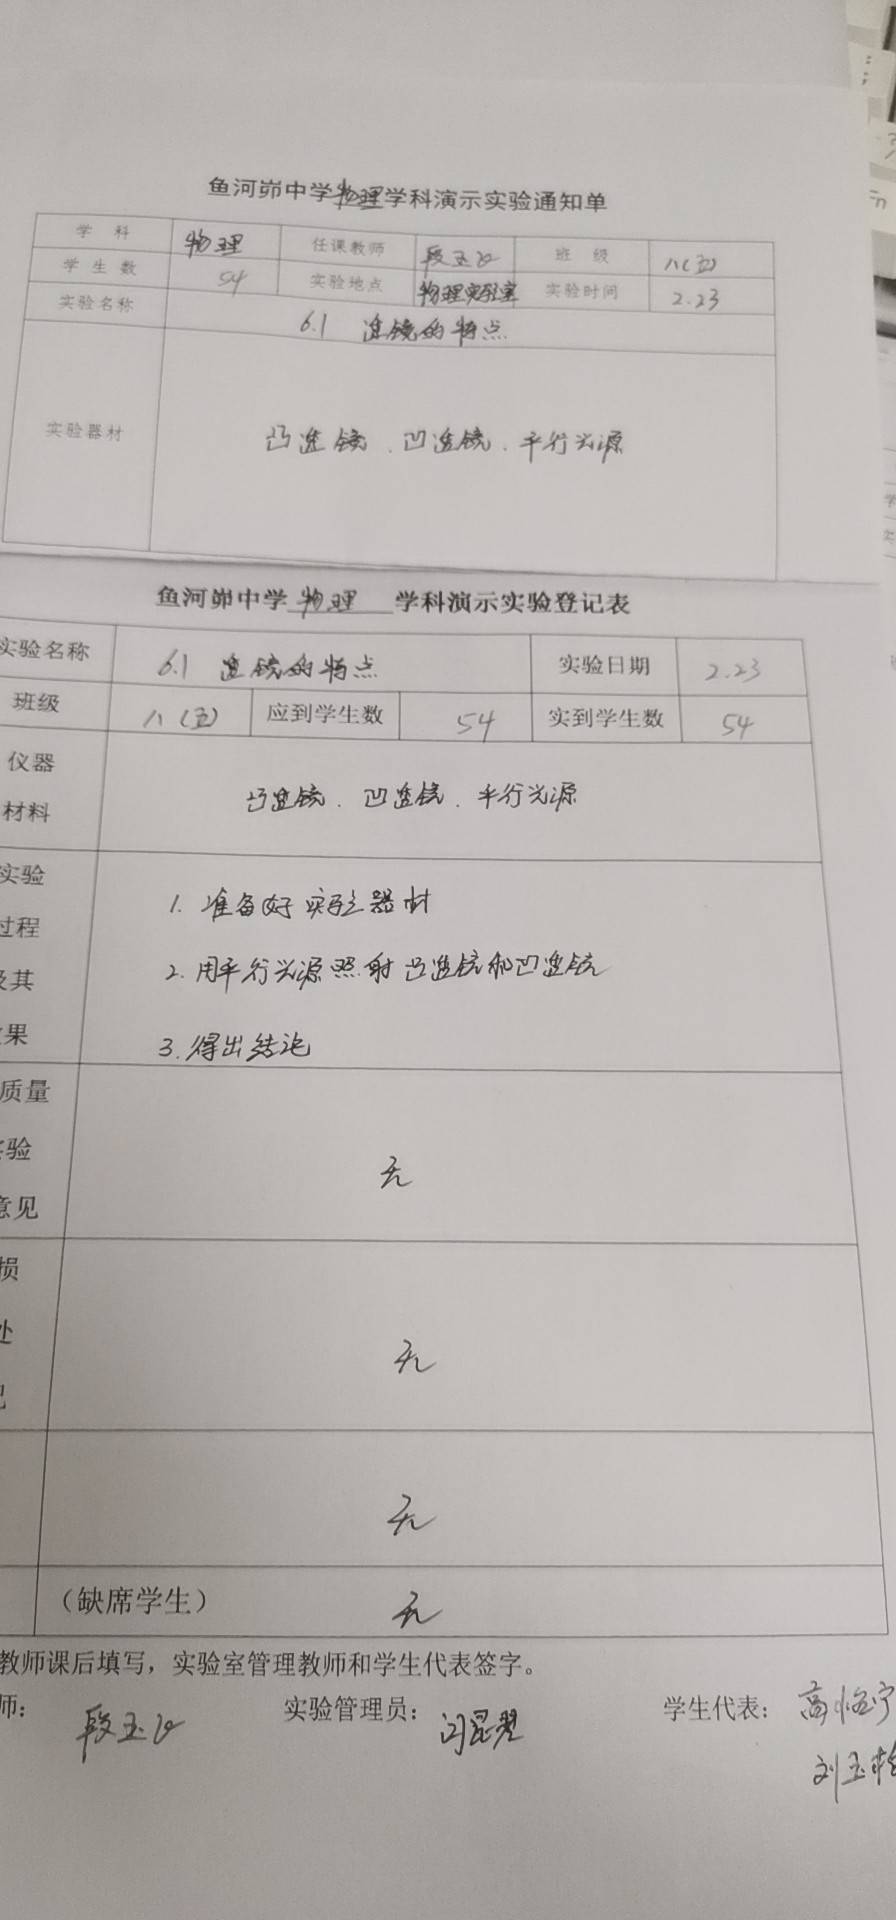 鱼河峁中学物理学科演示实验通知单
学 科 物理 任课教师 段玉 班 级 八(五)
学生数 54 实验地点 物理实验室 实验时间 2.23
实验名称 6.1 透镜的特点
实验器材 凸透镜、凹透镜、平行光源
鱼河峁中学 物理 学科演示实验登记表
实验名称 6.1 透镜的特点 实验日期 2.23
班级 八(五) 应到学生数 54 实到学生数 54
仪器
材料
凸透镜、凹透镜、平行光源
实验
过程
及其
果
1. 准备好实验器材
2. 用平行光源照射凸透镜和凹透镜
3. 得出结论
质量
验
意见
无
损
处
无
无
(缺席学生) 无
教师课后填写，实验室管理教师和学生代表签字。
师： 段玉 实验管理员： 学生代表： 高 宁
刘玉